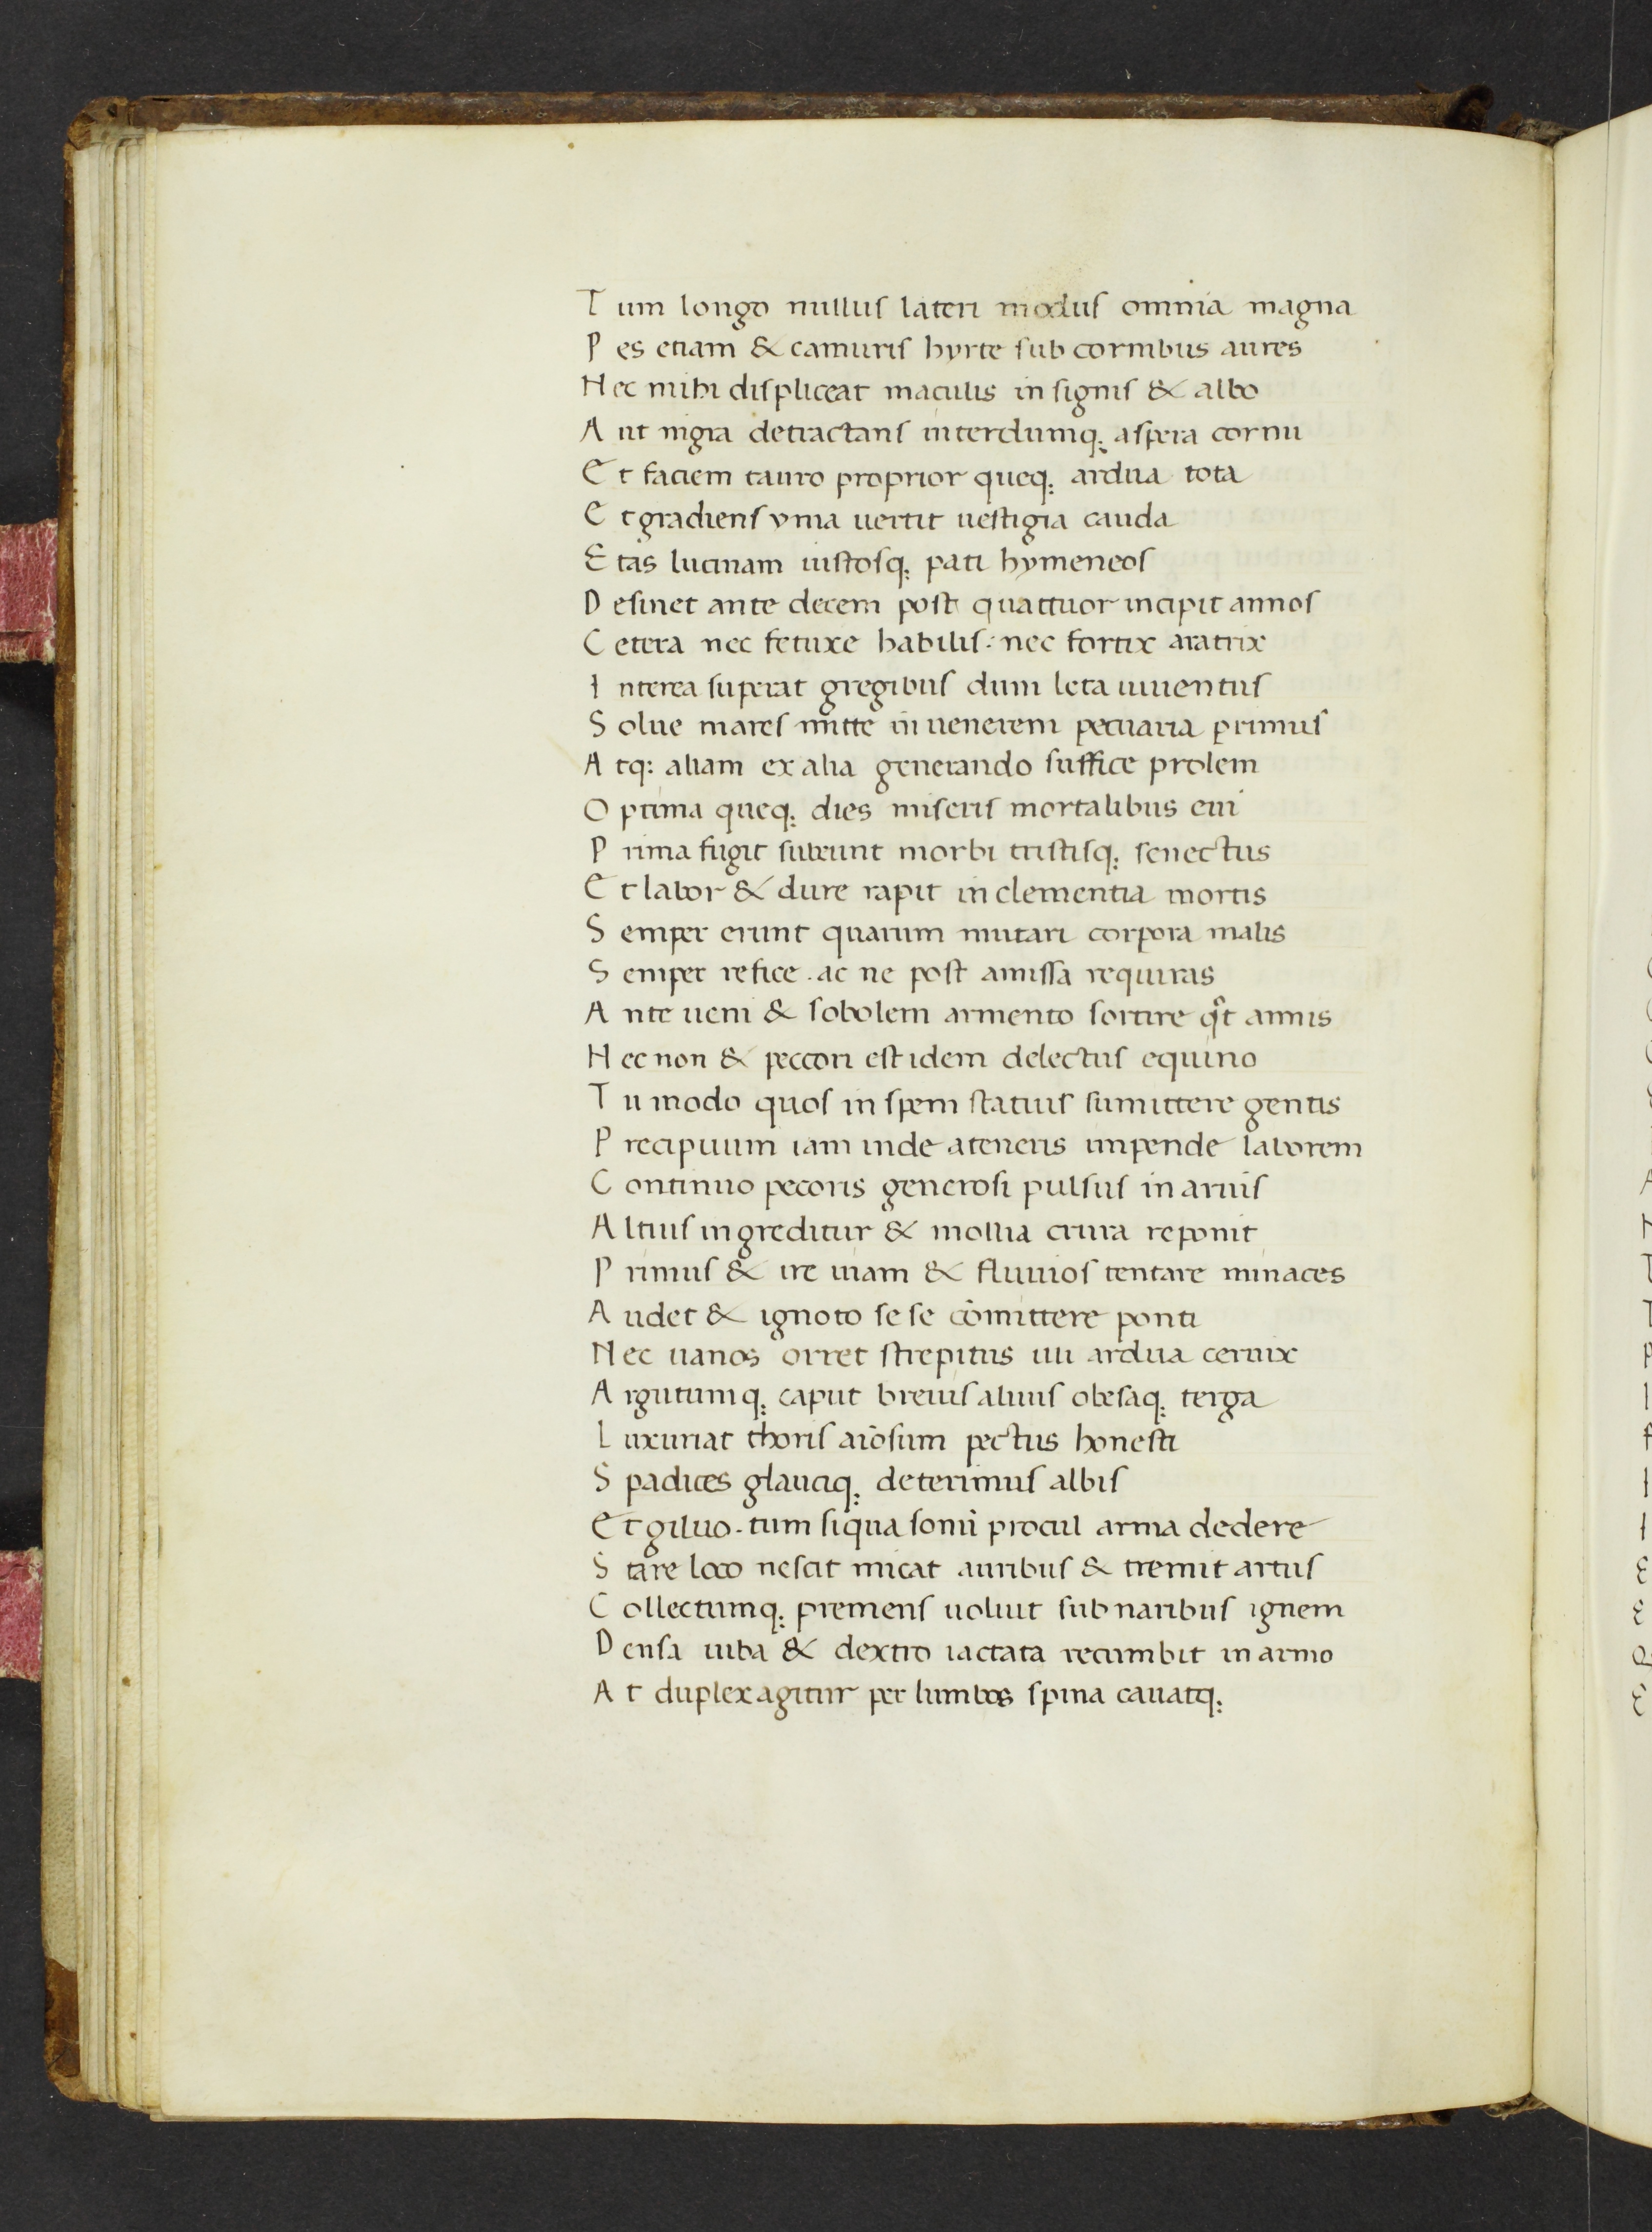 Tum longo nullus lateri modus omnia magna
Pes etiam & camuris hyrte sub cornibus aures
Nec mihi displiceat maculis in signis & albo
Aut nigra detractans interdumq; aspera cornu
Et faciem tauro proprior queq; ardua tota
Et gradiens yma uertit uestigia cauda
Etas lucinam iustosq; pati hymeneos
Desinet ante decem post quattuor incipit annos
Cetera nec feture habilis. nec fortix aratrix
Interea superat gregibus dum leta iuuentus
Solue mares mitte in uenerem pecuaria primus
Atq; aliam ex alia generando suffice prolem
Optima queq; dies miseris mortalibus eui
Prima fugit subeunt morbi tristisq; senectus
Et labor & dure rapit in clementia mortis
Semper erunt quarum mutari corpora malis
Semper refice . ac ne post amissa requiras
Ante ueni & sobolem armento sortire annis
Nec non & peccori est idem delectus equino
Tu modo quos in spem statuis sumittere gentis
Precipuum iam inde a teneris impende laborem
Continuo pecoris generosi pulsus in aruis
Altius ingreditur & mollia crura reponit
Primus & ire uiam & fluuios tentare minaces
Audet & ignoto se se cōmittere ponti
Nec uanos orret strepitus illi ardua ceruix
Argutumq; caput breuis aluus obesaq; terga
Luxuriat thoris aīosum pectus honesti
Spadices glauciq; deterimus albis
Et giluo . tum siqua sonū procul arma dedere
Stare loco nescit micat auribus & tremit artus
Collectumq; premens uoluit sub naribus ignem
Densa iuba & dextro iactata recumbit in armo
At duplex agitur per lumbos spina cauatq;